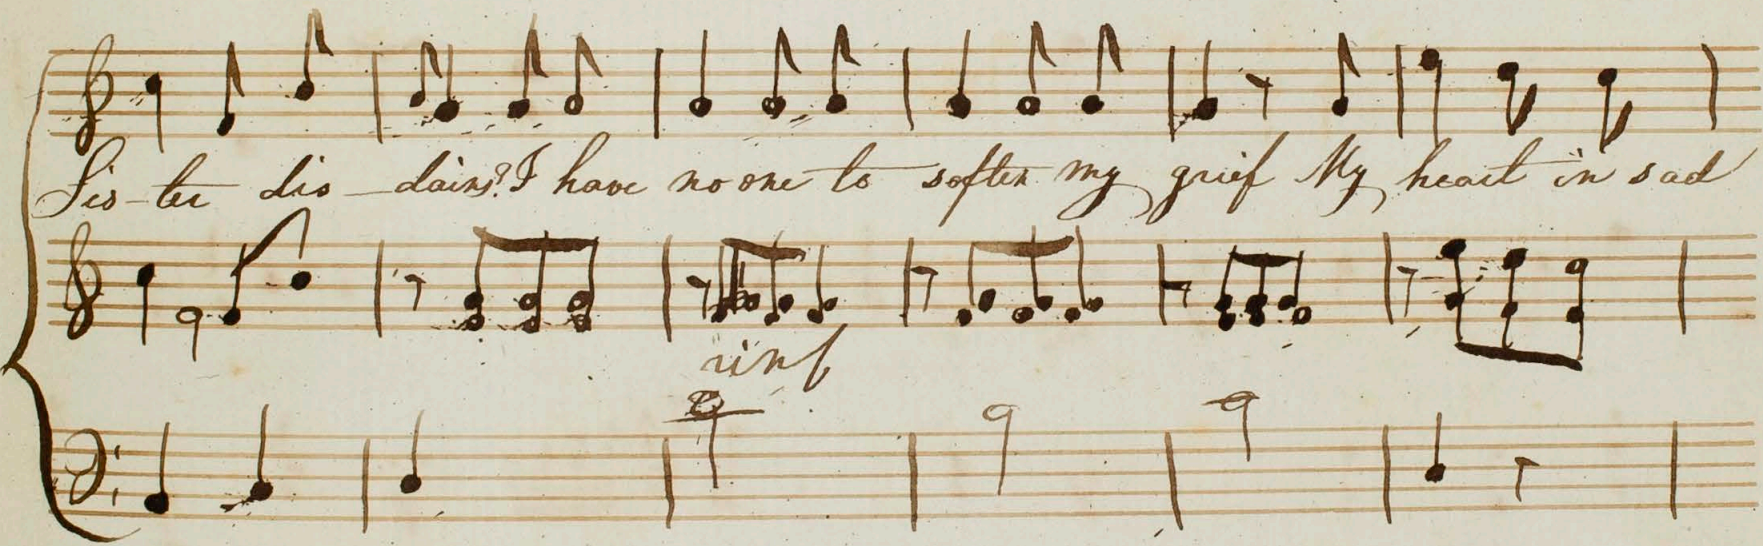 Sis-ter dis-dains? I have no one to soften my grief My heart in sad
rinf